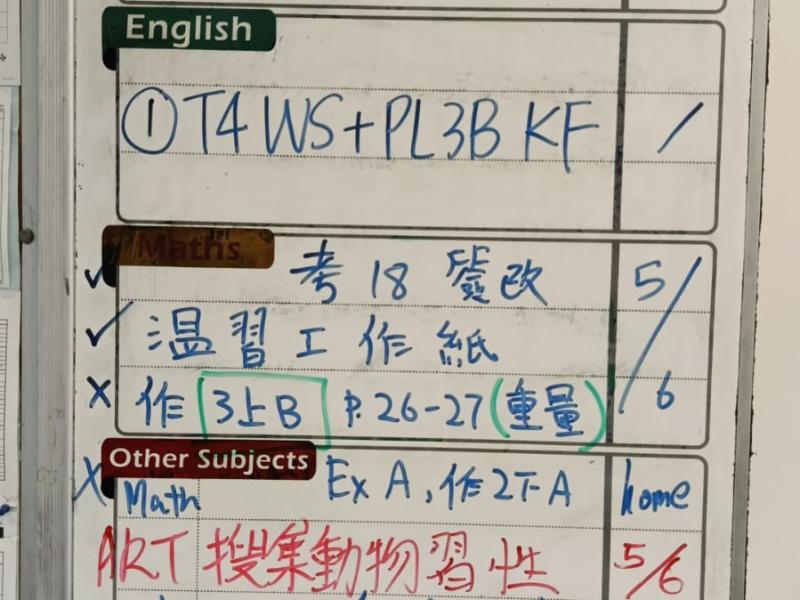 English
①T4 WS+PL3B KF /
Maths
✓ 考18 簽改 5/
✓ 溫習工作紙
× 作 3上B P.26-27(重量) 6
Other Subjects
× Math Ex A,作2下A home
ART 搜集動物習性 5/6